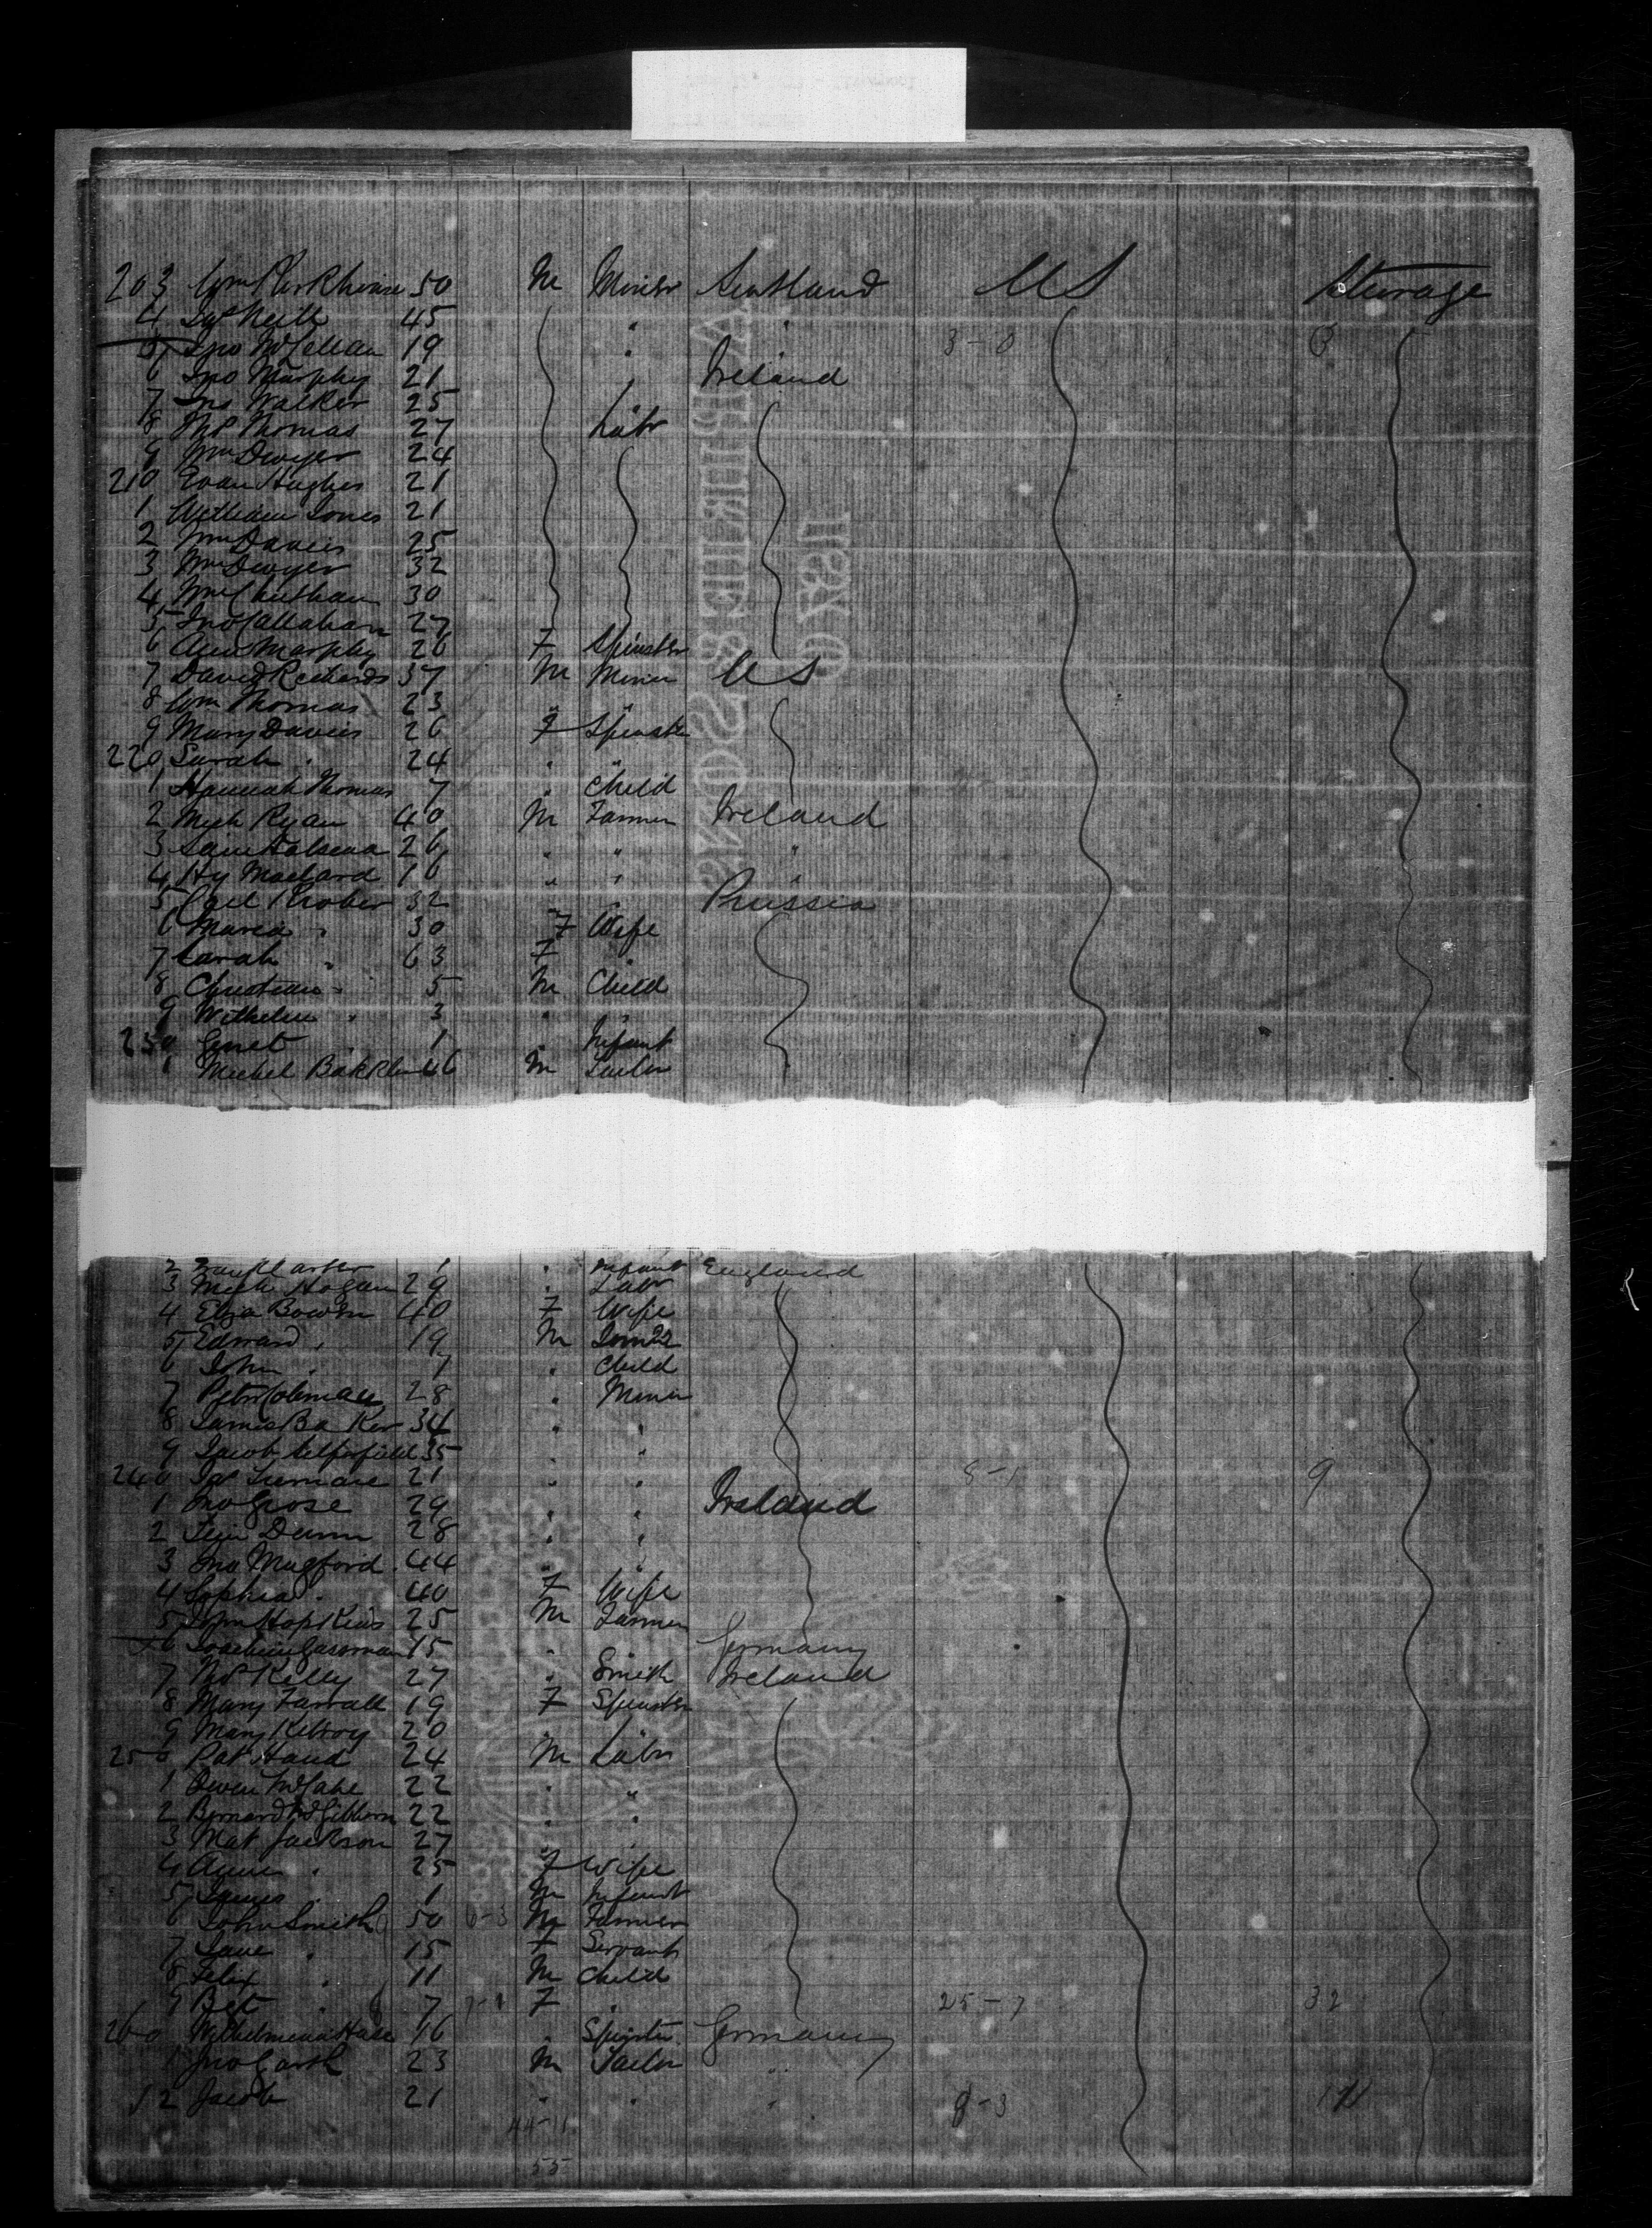 203 Wm Parkhouse 50 M Miner Scotland US Steerage
4 Jas Neill 45 " "
5 Jno McLellan 19 " 3-0
6 Jno Murphy 21 Ireland
7 Jno Walker 25
8 Ths Thomas 27 Labr
9 Wm Dwyer 24
210 Evan Hughes 21
1 William Jones 21
2 Wm Davies 25
3 Wm Dwyer 32
4 Wm Cheetham 30
5 Jno Callahan 27
6 Ann Murphy 26 F Spinster
7 David Richards 37 M Miner US
8 Wm Thomas 23 " "
9 Mary Davies 26 F Spinster
220 Sarah " 24 " "
1 Hannah Thomas 7 " Child
2 Mich Ryan 40 M Farmer Ireland
3 26 " " "
4 Hy 16 " " "
5 Carl 32 Prussia
6 Maria " 30 F Wife
7 Sarah " 63 F
8 Christian " 5 M Child
9 Wilhelm " 3 "
230 Ernst " 1 " Infant
1 Michel 46 M Tailor
2 Frank Carter 1 " Infant England
3 Mich Hogan 29 " Labr
4 Eliza Bowen 40 F Wife
5 Edward " 19 M
6 John " 7 " Child
7 Peter Coleman 28 " Miner
8 James Baker 34 " "
9 Jacob 35 " "
240 Jas 21 " " 8-1 9
1 Jno Grose 29 " " Ireland
2 Tim Dunn 28 " "
3 Jno Mugford 44 "
4 Sophia " 40 F Wife
5 John Hopkins 25 M Farmer
6 Joachim 15 " Germany
7 Kelly 27 " Smith Ireland
8 Mary Farrall 19 F Spinster
9 Mary Kilroy 20 " "
250 Pat Hand 24 M Labr
1 Owen McCabe 22 " "
2 Bernard McGibborn 22 " "
3 Mat Jackson 27
4 Anne " 25 F Wife
5 James " 1 M Infant
6 John Smith 50 6-3 M Farmer
7 Jane " 15 F Servant
8 Felix " 11 M Child
9 Bet " 7 F " 25-7 32
260 Wilhelmina 16 " Spinster Germany
1 Jno 23 M Tailor "
2 Jacob 21 " " " 8-3 11
44-11
55